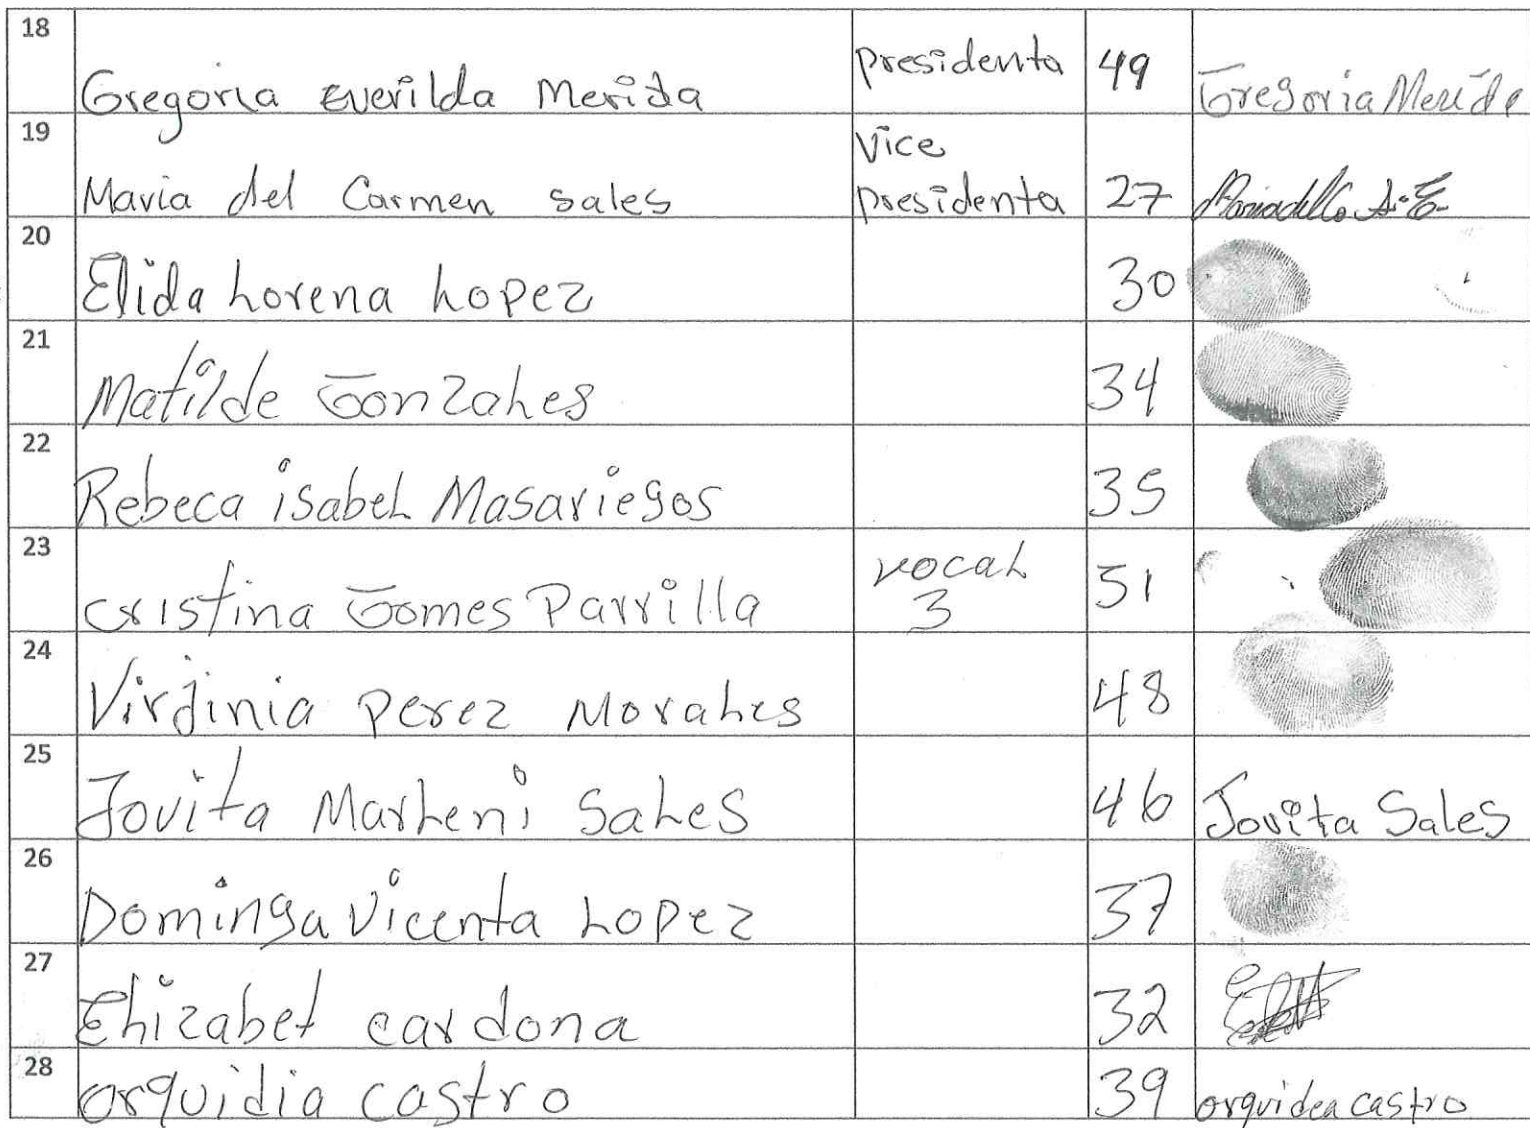 18 Gregoria everilda Merida presidenta 49 Gregoria Merida
19 Maria del Carmen sales Vice presidenta 27
20 Elida Lorena Lopez 30
21 Matilde Gonzales 34
22 Rebeca isabel Masariegos 35
23 cristina Gomes Parrilla vocal 3 51
24 Virjinia perez Morales 48
25 Jovita Marleni Sales 46 Jovita Sales
26 Dominga Vicenta Lopez 37
27 Elizabet cardona 32
28 orquidia castro 39 orquidea castro